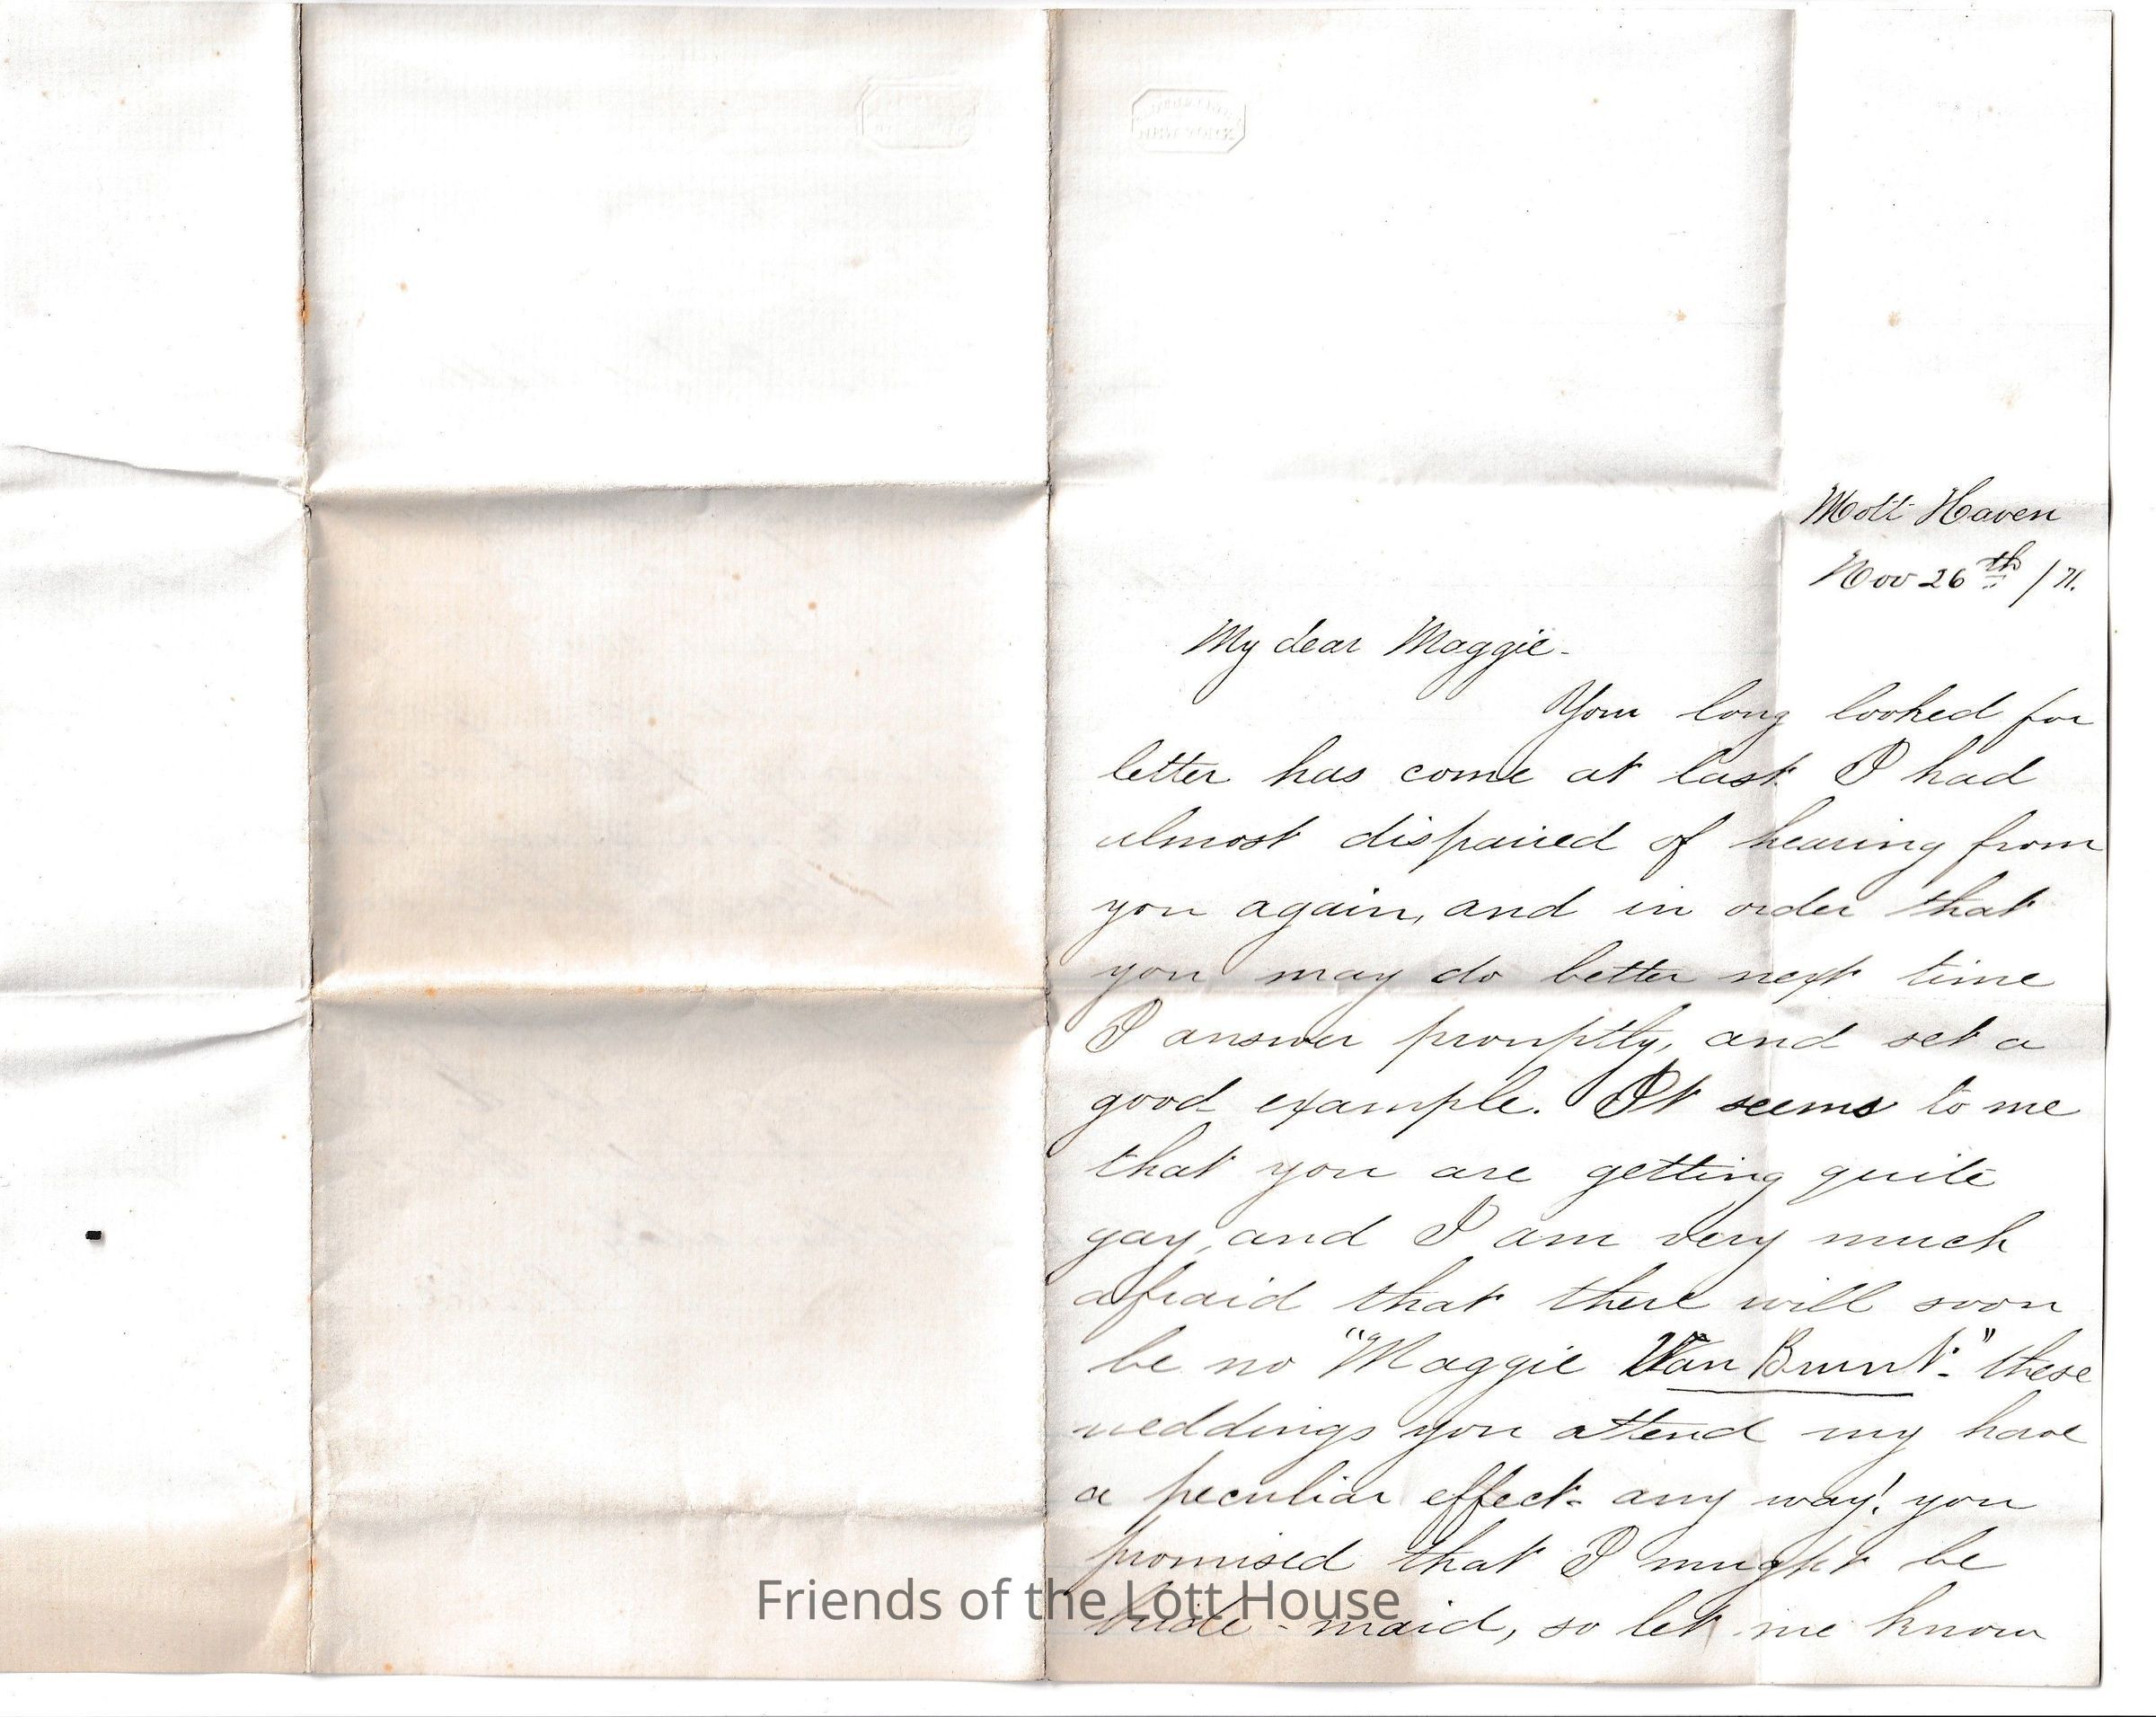 NEW YORK
Mott Haven
Nov 26th /71.
My dear Maggie-
Your long looked for
letter has come at last. I had
almost dispaired of hearing from
you again, and in order that
you may do better next time
I answer promptly, and set a
good example. It seems to me
that you are getting quite
gay, and I am very much
afraid that there will soon
be no "Maggie Van Brunt-" these
weddings you attend my have
a peculiar effect- any way! you
promised that I might be
bride-maid, so let me know
Friends of the Lott House